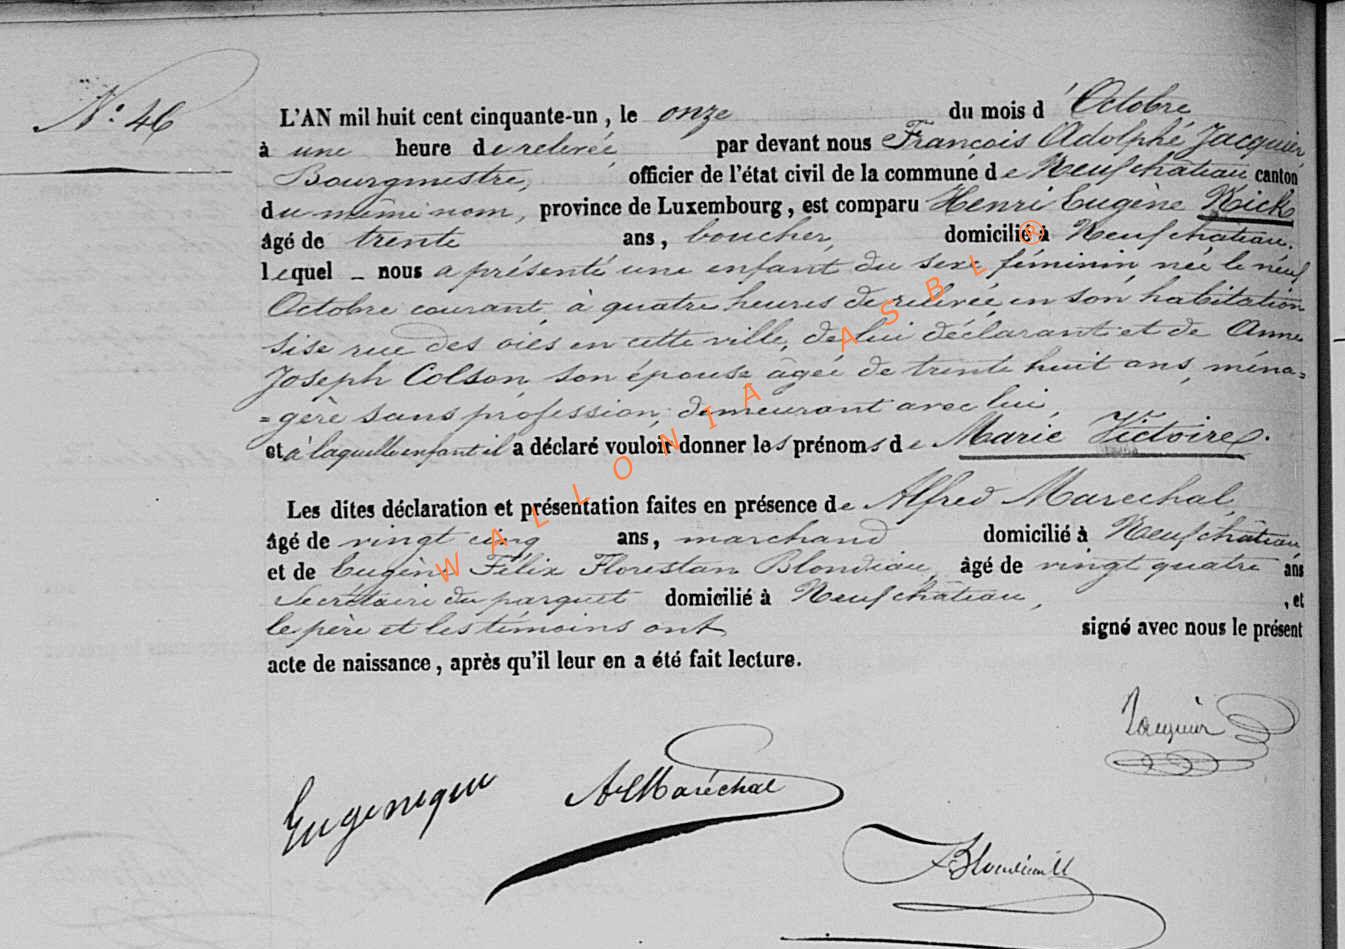 N.° 46
L'AN mil huit cent cinquante-un, le onze du mois d'Octobre
à une heure de relevée par devant nous François Adolphe Jacquier,
Bourgmestre, officier de l'état civil de la commune de Neufchateau canton
du même nom, province de Luxembourg, est comparu Henri Eugène Kick
âgé de trente ans, boucher, domicilié à Neufchateau.
lequel nous a présenté une enfant du sexe féminin, née le neuf
Octobre courant, à quatre heures de relevée en son habitation
sise rue des oies en cette ville, de lui déclarant et de Anne
Joseph Colson son épouse âgée de trente huit ans, ména=
=gère sans profession, demeurant avec lui,
et à laquelle enfant il a déclaré vouloir donner les prénoms de Marie Victoire.
Les dites déclaration et présentation faites en présence de Alfred Marechal,
âgé de vingt cinq ans, marchand domicilié à Neufchâteau,
et de Eugène Félix Florestan Blondiau, âgé de vingt quatre ans
Secrétaire du parquet domicilié à Neufchâteau, , et
le père et les témoins ont signé avec nous le présent
acte de naissance, après qu'il leur en a été fait lecture.
Jacquier
A Maréchal
WALLONIA ASBL ®